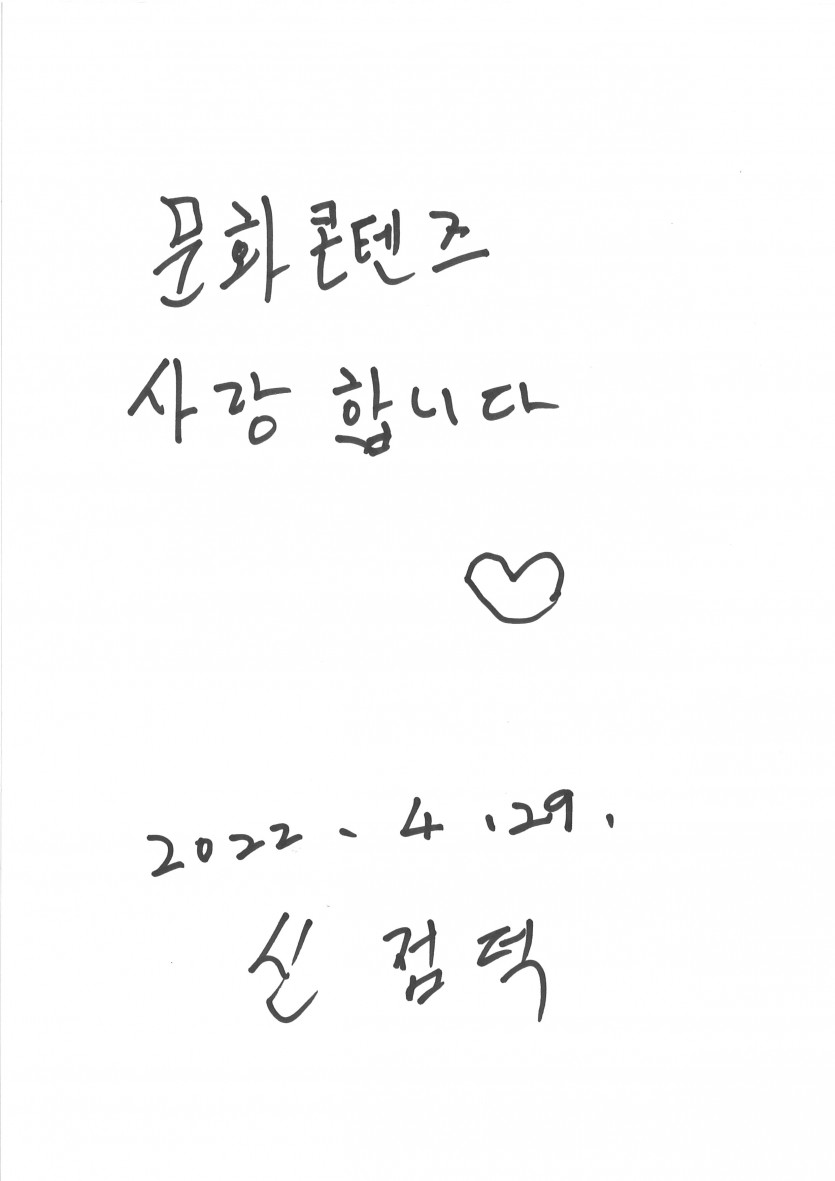 문화콘텐즈
사랑 합니다
♡
2022. 4.29.
신 점덕